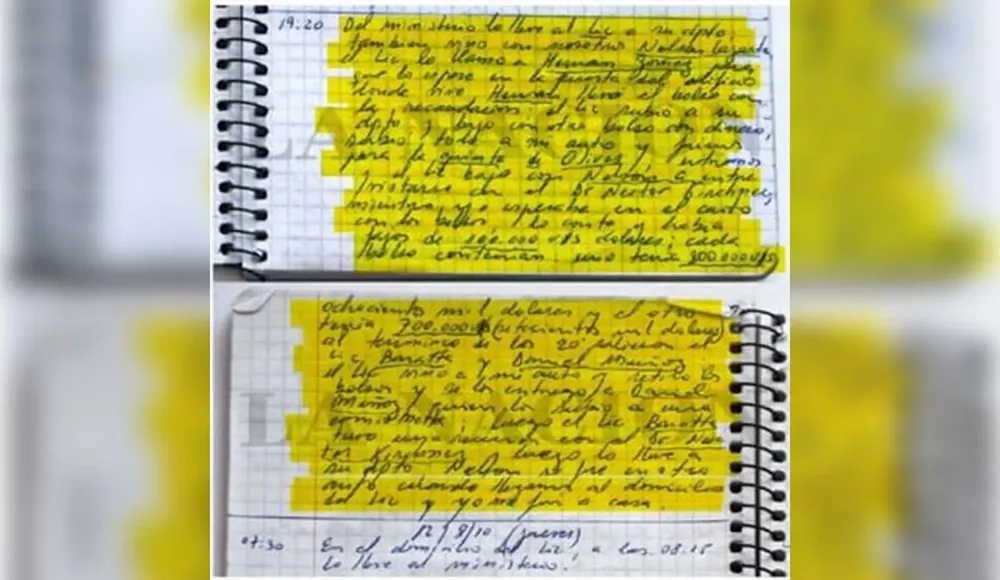 19:20 Del ministerio lo lleve al Lic a su dpto
tambien vino con nosotros Nelson Lazarte
el Lic lo llamo a Hernan Gomez para
que lo espere en la puerta del edificio
donde vive Hernan llevó el bolso con
la recaudacion; el Lic subio a su
dpto y bajo con otro bolso con dinero,
subio todo a mi auto y fuimos
para la quinta de Olivos, entramos
y el Lic bajo con Nelson a entre
vistarse con el Dr Nestor Kirchner,
mientras yo esperaba en el auto
con los bolsos los conte y habia
fajos de 100.000 u$s dolares; cada
bolso contenian: uno tenia 800.000 u$s
ochocientos mil dolares y el otro
tenia 700.000 u$s (setecientos mil dolares)
al termino de los 20' salieron el
Lic Baratta y Daniel Muñoz
el Lic vino a mi auto y retiro los
bolsos y se los entrego a Daniel
Muñoz y quien los subio a una
camioneta; luego el Lic Baratta
tuvo una reunion con el Dr Nes
tor Kirchner luego lo lleve a
su dpto Nelson se fue en otro
auto cuando llegamos al domicilio
del Lic y yo me fui a casa.
12/8/10 (jueves)
07:30 En el domicilio del Lic, a las 08:15
lo lleve al ministerio.
LA NACION